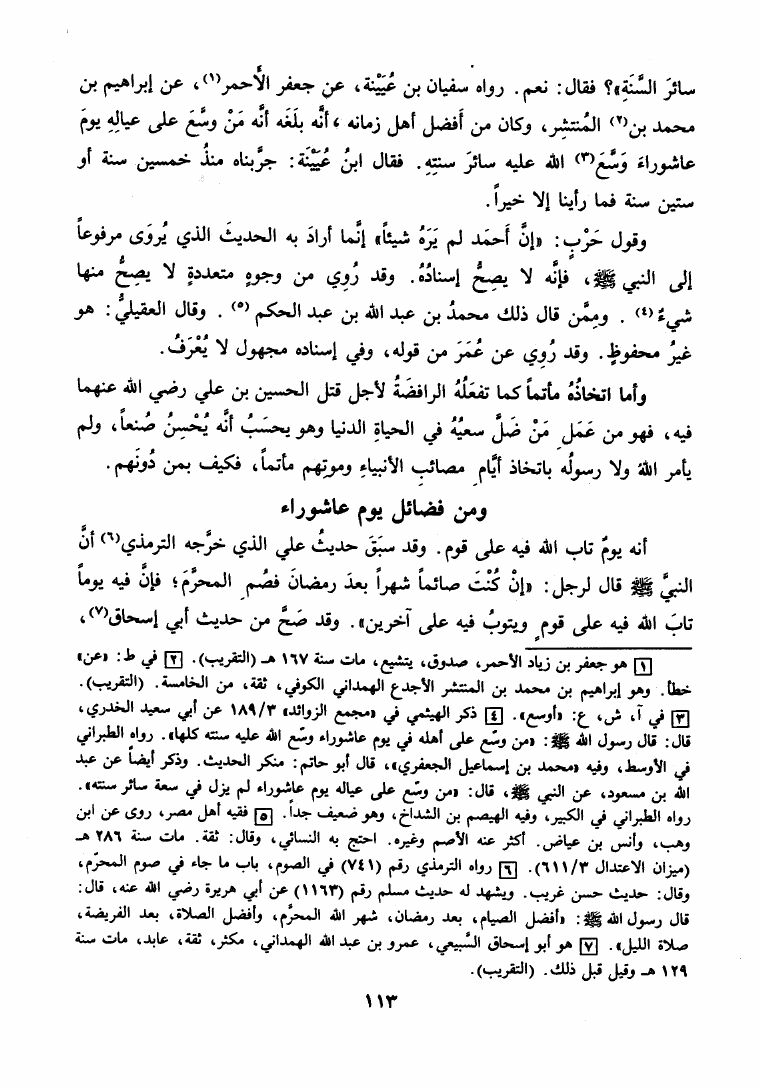 سائرَ السَّنَةِ»؟ فقال: نعم. رواه سفيان بن عُيَيْنة، عن جعفر الأَحمر(١)، عن إبراهيم بن
محمد بن(٢) المُنتشِر، وكان من أَفضل أهل زمانه، أنَّه بلَغَه أنَّه مَنْ وسَّعَ على عيالِهِ يومَ
عاشوراءَ وَسَّعَ(٣) الله عليه سائرَ سنتِهِ. فقال ابنُ عُيَيْنَة: جرَّبناه منذُ خمسين سنة أو
ستين سنة فما رأينا إلا خيراً.
وقول حَرْبٍ: «إنَّ أَحمَد لم يَرَهُ شيئاً» إنَّما أرادَ به الحديثَ الذي يُروَى مرفوعاً
إلى النبي ﷺ، فإنَّه لا يصِحُّ إسنادُهُ. وقد رُوِي من وجوهٍ متعددةٍ لا يصِحُّ منها
شيءٌ(٤). ومِمَّن قال ذلك محمدُ بن عبد الله بن عبد الحكم(٥). وقال العقيليُّ: هو
غيرُ محفوظٍ. وقد رُوِي عن عُمَرَ من قوله، وفي إسناده مجهول لا يُعْرَفُ.
وأما اتخاذُهُ مأتماً كما تفعَلُهُ الرافضَةُ لأجل قتل الحسين بن علي رضي الله عنهما
فيه، فهو من عَمَلِ مَنْ ضَلَّ سعيُهُ في الحياةِ الدنيا وهو يحسَبُ أنَّه يُحْسِنُ صُنعاً، ولم
يأمر اللهُ ولا رسولُه باتخاذ أيَّامِ مصائبِ الأنبياءِ وموتِهم مأتماً، فكيف بمن دُونَهم.
ومن فضائل يوم عاشوراء
أنه يومٌ تاب الله فيه على قوم. وقد سبَقَ حديثُ علي الذي خرَّجه الترمذي(٦) أنَّ
النبيَّ ﷺ قال لرجل: «إنْ كُنْتَ صائماً شهراً بعدَ رمضانَ فصُمِ المحرَّمَ؛ فإنَّ فيه يوماً
تابَ الله فيه على قومٍ ويتوبُ فيه على آخرين». وقد صَحَّ من حديث أبي إسحاق(٧)،
١ هو جعفر بن زياد الأحمر، صدوق، يتشيع، مات سنة ١٦٧ هـ (التقريب). ٢ في ط: «عن»
خطأ. وهو إبراهيم بن محمد بن المنتشر الأجدع الهمداني الكوفي، ثقة، من الخامسة. (التقريب).
٣ في آ، ش، ع: «أوسع». ٤ ذكر الهيثمي في «مجمع الزوائد» ١٨٩/٣ عن أبي سعيد الخدري،
قال: قال رسول الله ﷺ: «من وسّع على أهله في يوم عاشوراء وسّع الله عليه سنته كلها». رواه الطبراني
في الأوسط، وفيه «محمد بن إسماعيل الجعفري»، قال أبو حاتم: منكر الحديث. وذكر أيضاً عن عبد
الله بن مسعود، عن النبي ﷺ، قال: «من وسّع على عياله يوم عاشوراء لم يزل في سعة سائر سنته».
رواه الطبراني في الكبير، وفيه الهيصم بن الشداخ، وهو ضعيف جداً. ٥ فقيه أهل مصر، روى عن ابن
وهب، وأنس بن عياض. أكثر عنه الأصم وغيره. احتج به النسائي، وقال: ثقة. مات سنة ٢٨٦ هـ
(ميزان الاعتدال ٦١١/٣). ٦ رواه الترمذي رقم (٧٤١) في الصوم، باب ما جاء في صوم المحرّم،
وقال: حديث حسن غريب. ويشهد له حديث مسلم رقم (١١٦٣) عن أبي هريرة رضي الله عنه، قال:
قال رسول الله ﷺ: «أفضل الصيام، بعد رمضان، شهر الله المحرَّم، وأفضل الصلاة، بعد الفريضة،
صلاة الليل». ٧ هو أبو إسحاق السَّبيعي، عمرو بن عبد الله الهمداني، مكثر، ثقة، عابد، مات سنة
١٢٩ هـ وقيل قبل ذلك. (التقريب).
١١٣